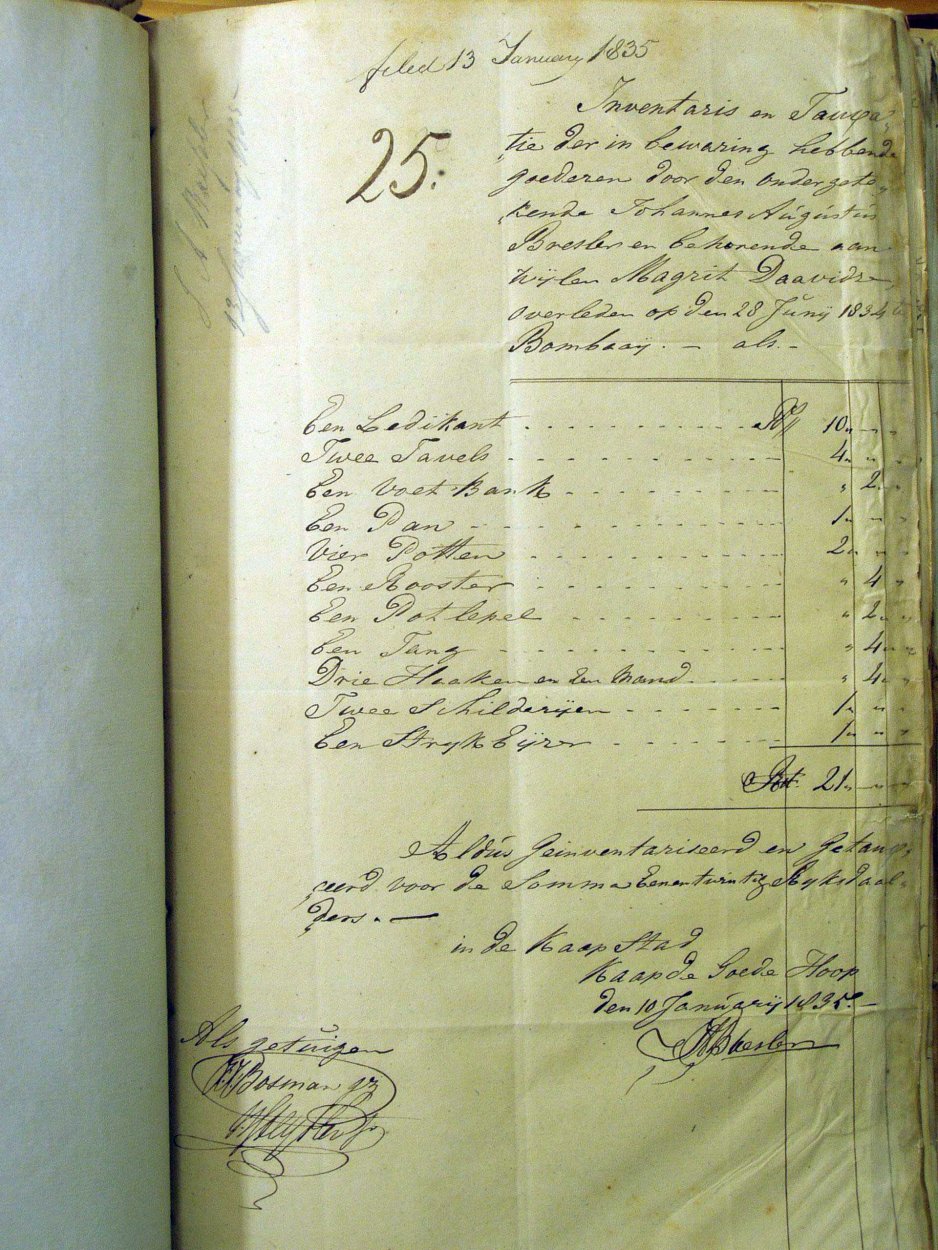 filed 13 January 1835
25.
Inventaris en Tauxa„
„tie der in bewaring hebbende
goederen door den ondergete„
„kende Johannes Augustus
Bresler en behorende aan
wijlen Magrit Daavids
overleden op den 28 Junij 1834 te
Bombaaij. — als. —
Een Ledikant R/ 10 „ „ „
Twee Tavels 4 „ „ „
Een Voet Bank „ 2 „ „
Een Pan 1 „ „ „
Vier Potten 2 „ „ „
Een Rooster „ 4 „
Een Potlepel „ 2 „ „
Een Tang „ 4 „ „
Drie Haaken en Een Mand „ 4 „ „
Twee Schilderijen 1 „ „ „
Een Stryk Eijzer 1 „ „ „
21 „ „ „
Aldus Geinventariseerd en Getaux„
„ceerd. voor de Somma Eenentwintig Ryksdaal„
„ders. —
in de Kaap Stad
Kaap de Goede Hoop
den 10 Januarij 1835. —
Bresler
Als getuigen
Bosman